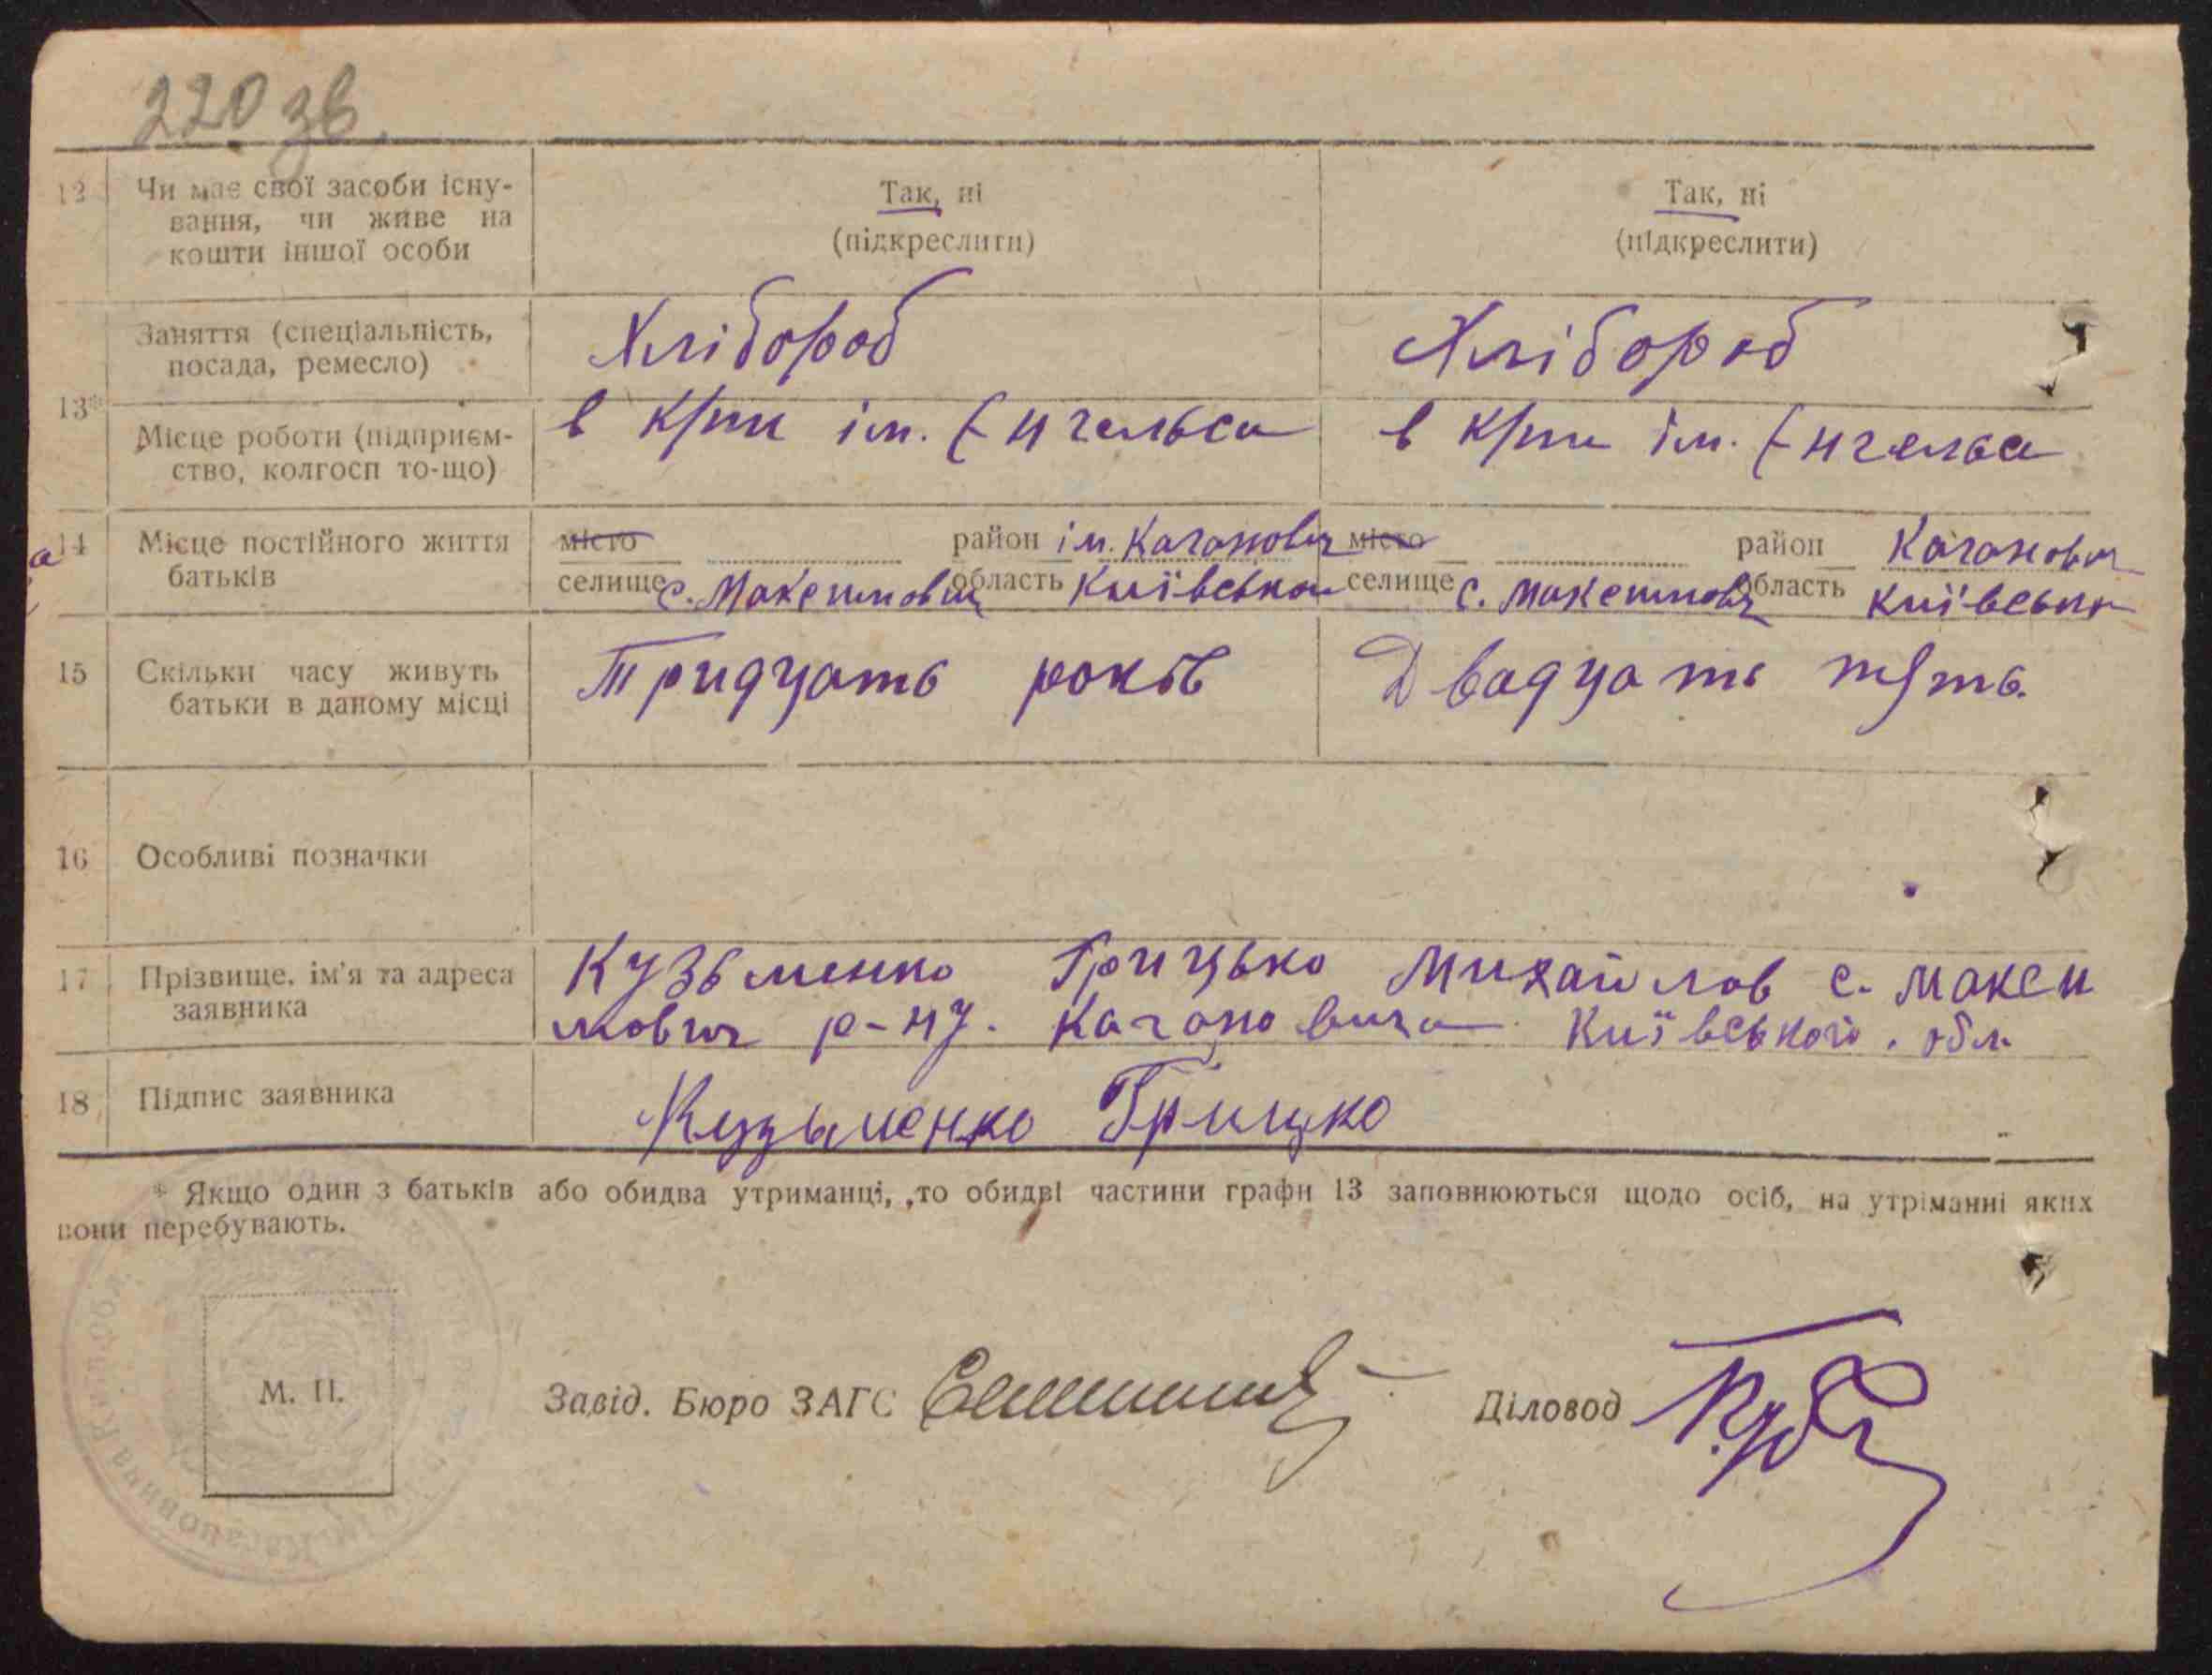 220 зв.
12 Чи має свої засоби існу-
вання, чи живе на
кошти іншої особи
Так, ні
(підкреслити)
Так, ні
(підкреслити)
13*
Заняття (спеціальність,
посада, ремесло)
Хлібороб
Хлібороб
Місце роботи (підприєм-
ство, колгосп то-що)
в к/гпи ім. Енгельса
в к/гпи ім. Енгельса
14 Місце постійного життя
батьків
місто район ім. Кагановича
селище с. Максимович область Київської
місто район Каганович
селище с. Максимович область Київська
15 Скільки часу живуть
батьки в даному місці
Тридцять років
Двадцять п'ять.
16 Особливі позначки
17 Прізвище, ім'я та адреса
заявника
Кузьменко Грицько Михайлов с. Макси
мович р-ну. Кагановича Київської. обл.
18 Підпис заявника
Кузьменко Грицко
* Якщо один з батьків або обидва утриманці, то обидві частини графи 13 заповнюються щодо осіб, на утріманні яких
вони перебувають.
М. П.
Завід. Бюро ЗАГС
Діловод